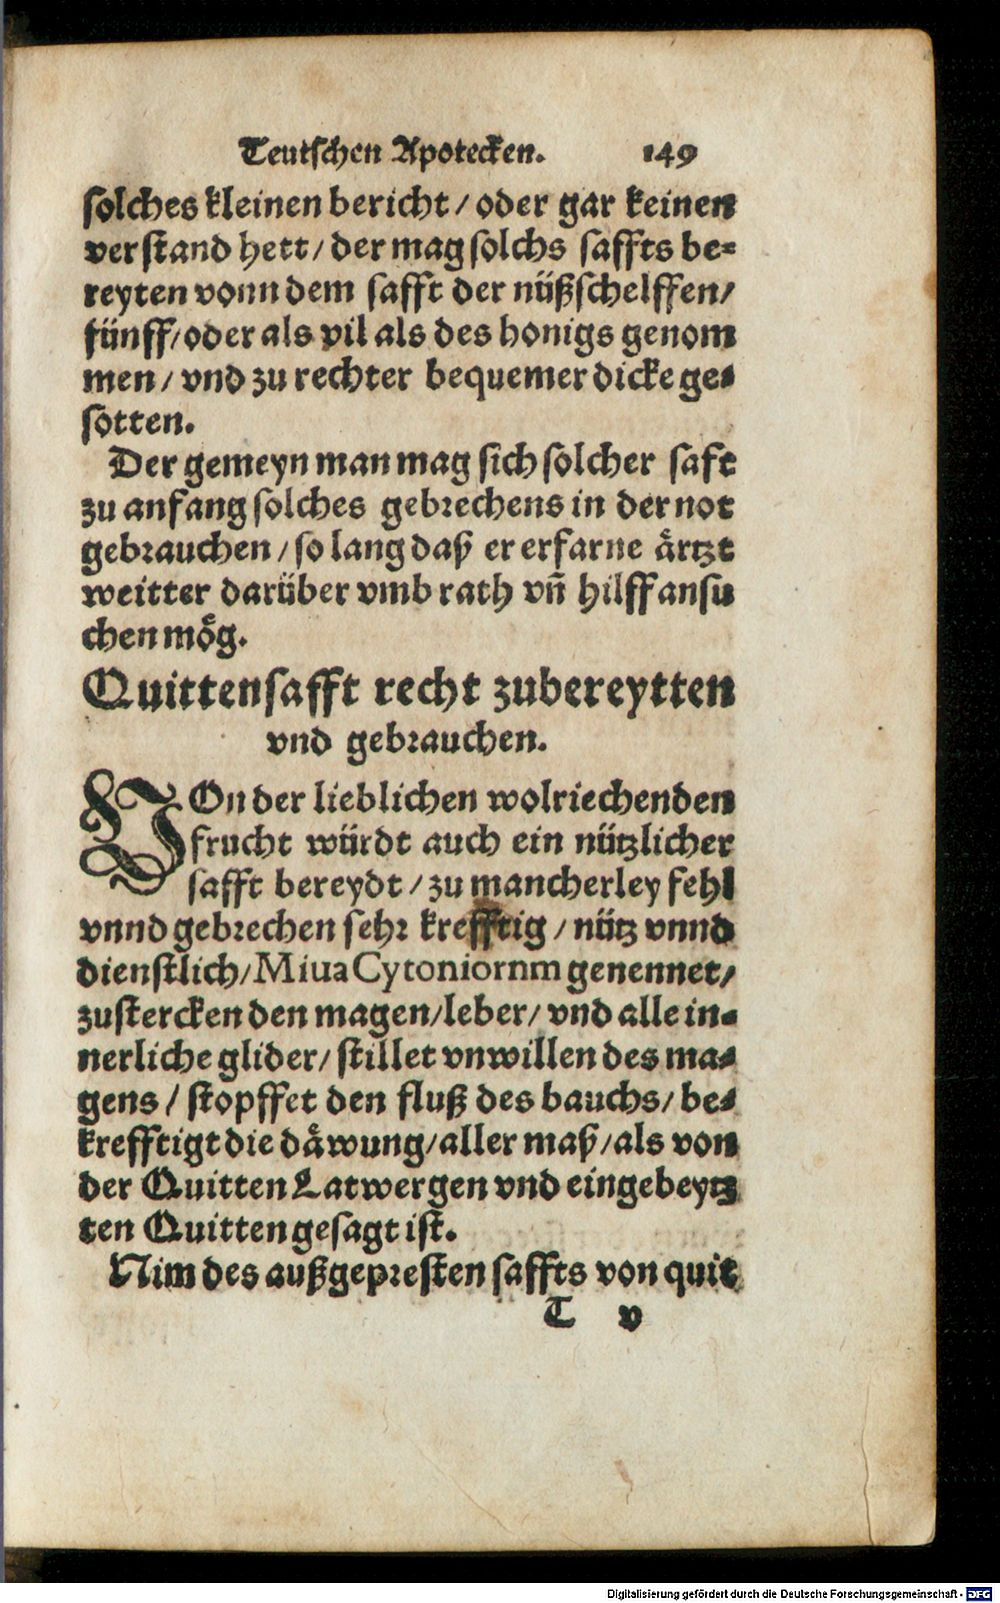 Teutschen Apotecken. 149
solches kleinen bericht / oder gar keinen
verstand hett / der mag solchs saffts be-
reyten vonn dem safft der nüßschelffen /
fünff / oder als vil als des honigs genom
men / vnd zu rechter bequemer dicke ge-
sotten.
Der gemeyn man mag sich solcher saft
zu anfang solches gebrechens in der not
gebrauchen / so lang daß er erfarne ärtzt
weitter darüber vmb rath vñ hilff ansu
chen mög.
Quittensafft recht zubereytten
vnd gebrauchen.
VOn der lieblichen wolriechenden
frucht würdt auch ein nützlicher
safft bereydt / zu mancherley fehl
vnnd gebrechen sehr krefftig / nütz vnnd
dienstlich / Miua Cytoniornm genennet /
zustercken den magen / leber / vnd alle in-
nerliche glider / stillet vnwillen des ma-
gens / stopffet den fluß des bauchs / be-
krefftigt die däwung / aller maß / als von
der Quitten Latwergen vnd eingebeytz
ten Quitten gesagt ist.
Nim des außgepresten saffts von quit
T v
Digitalisierung gefördert durch die Deutsche Forschungsgemeinschaft - DFG